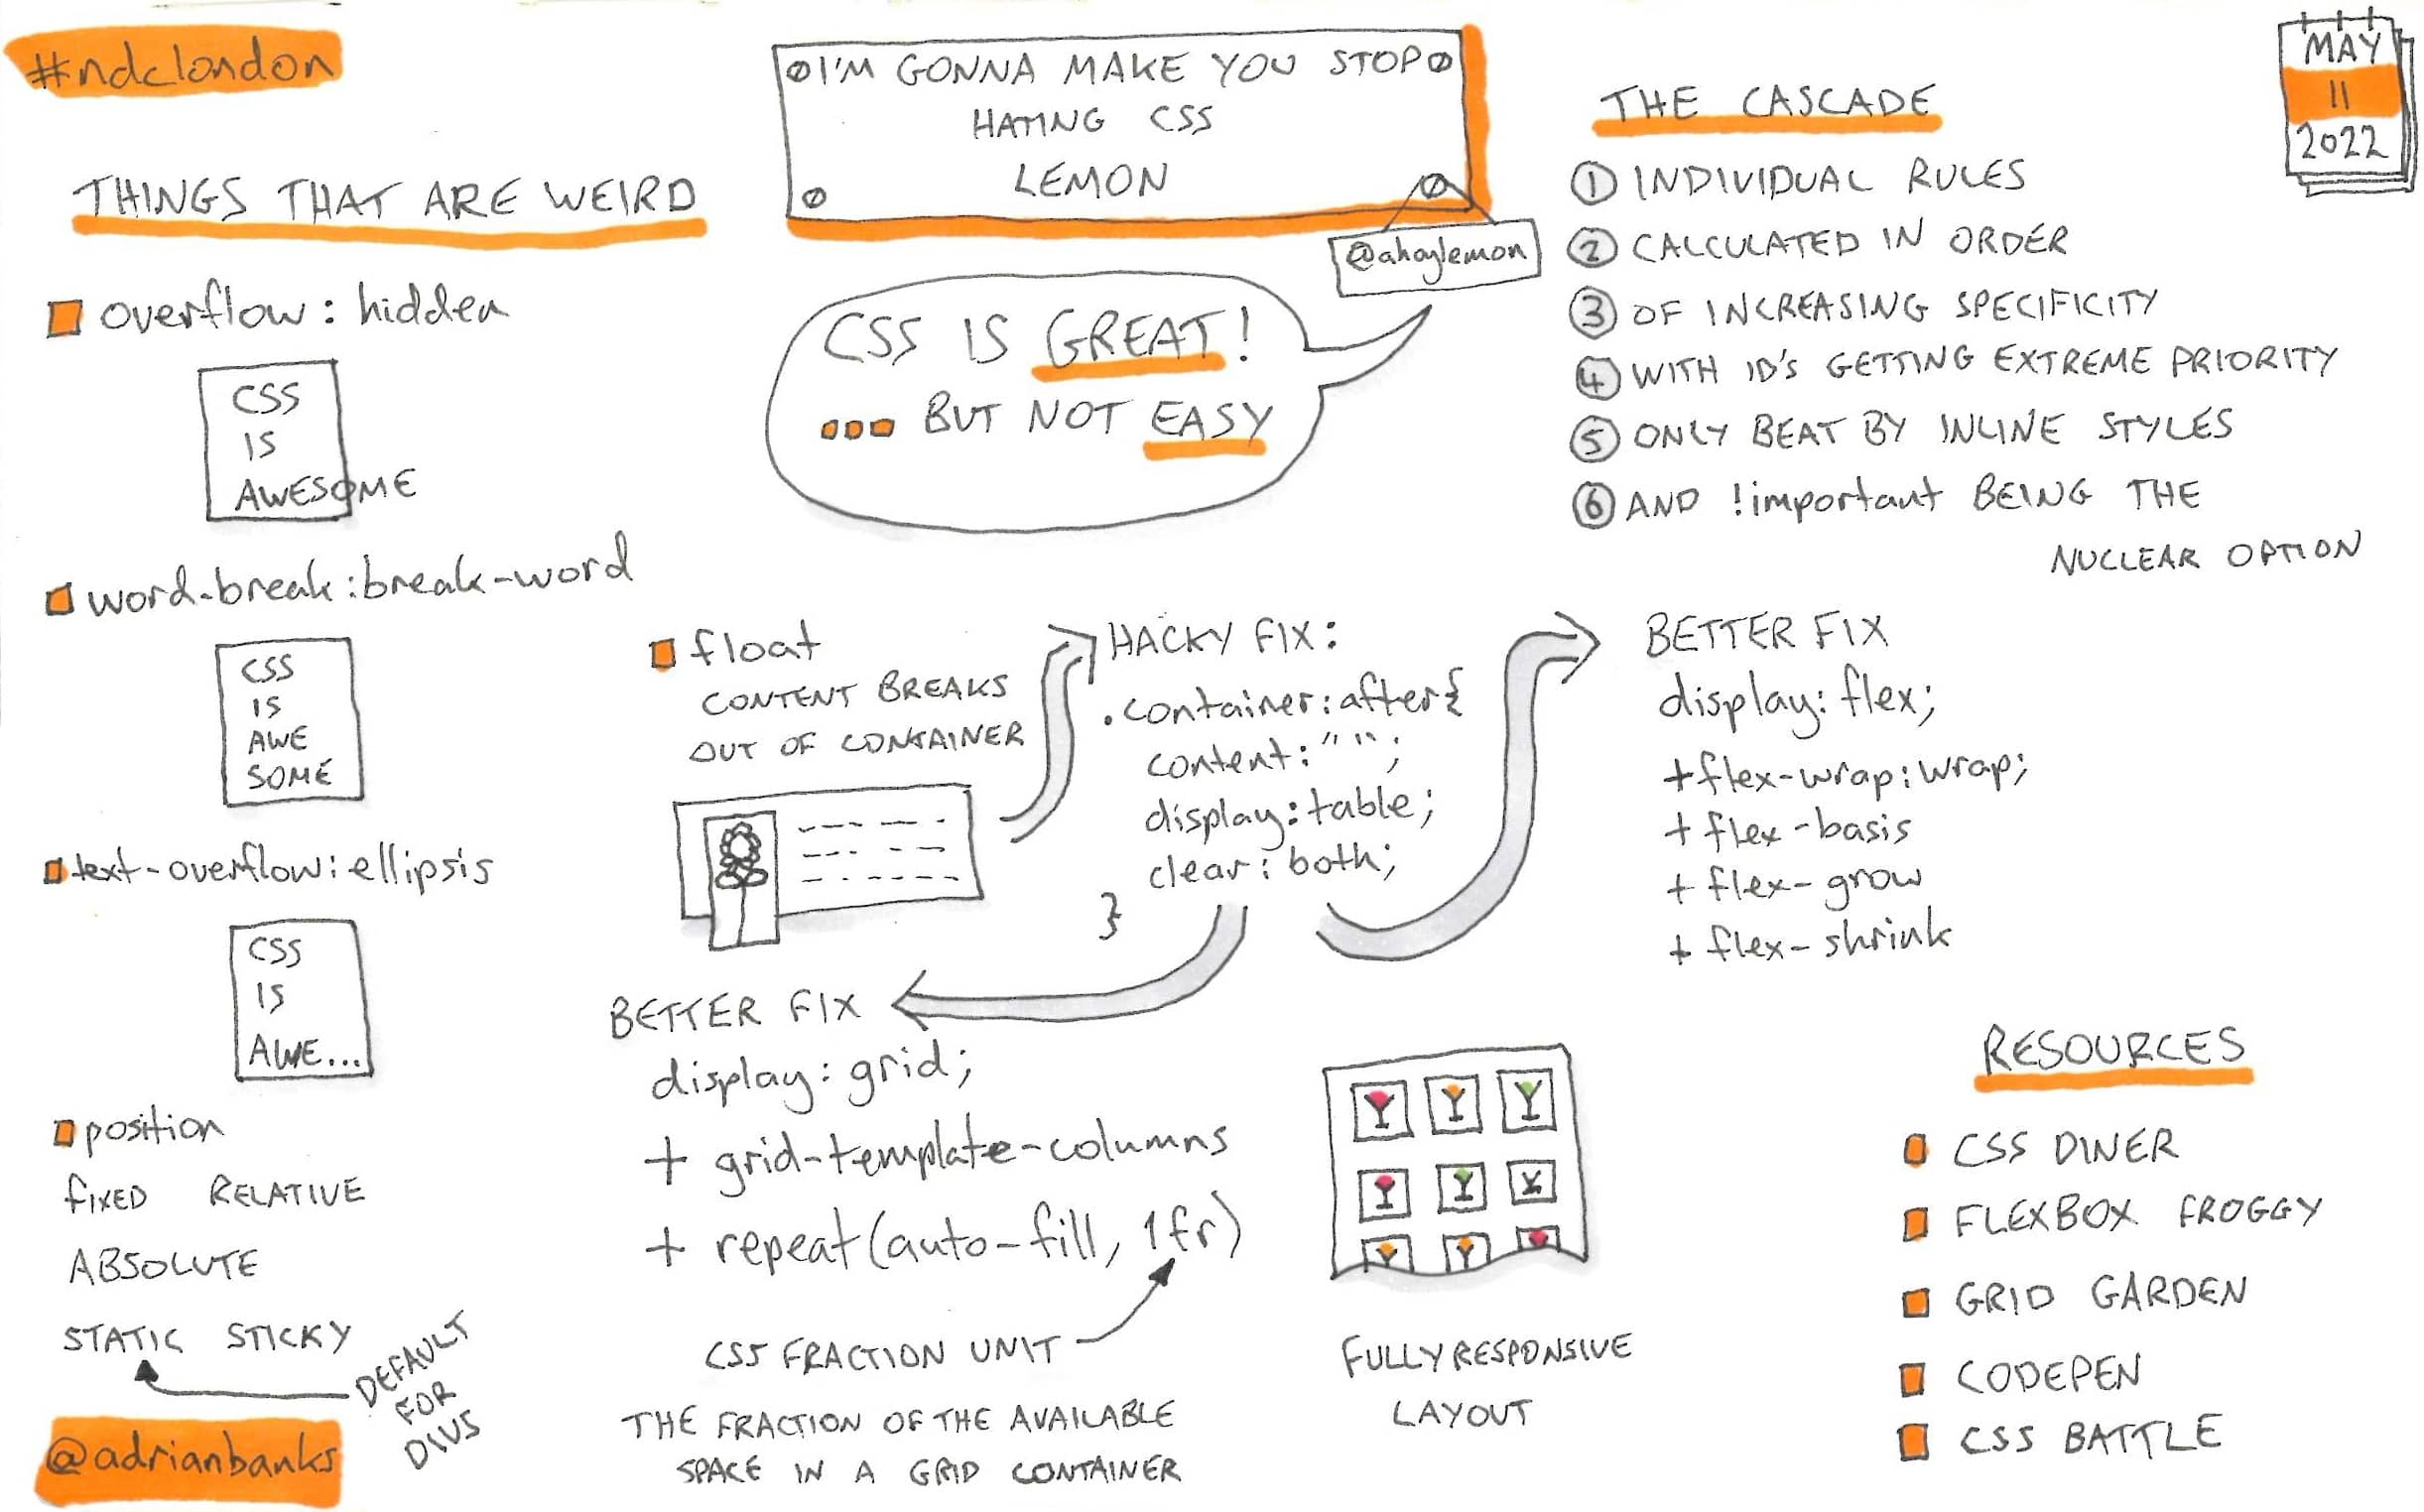 #ndclondon
I'M GONNA MAKE YOU STOP
HATING CSS
LEMON
@ahoylemon
MAY
11
2022
CSS IS GREAT!
... BUT NOT EASY
THINGS THAT ARE WEIRD
overflow: hidden
CSS
IS
AWESOME
word-break: break-word
CSS
IS
AWE
SOME
text-overflow: ellipsis
CSS
IS
AWE...
position
FIXED RELATIVE
ABSOLUTE
STATIC STICKY
DEFAULT
FOR
DIVS
@adrianbanks
float
CONTENT BREAKS
OUT OF CONTAINER
HACKY FIX:
.container:after{
content: "";
display: table;
clear: both;
}
BETTER FIX
display: flex;
+ flex-wrap: wrap;
+ flex-basis
+ flex-grow
+ flex-shrink
BETTER FIX
display: grid;
+ grid-template-columns
+ repeat(auto-fill, 1fr)
CSS FRACTION UNIT
THE FRACTION OF THE AVAILABLE
SPACE IN A GRID CONTAINER
FULLY RESPONSIVE
LAYOUT
THE CASCADE
1 INDIVIDUAL RULES
2 CALCULATED IN ORDER
3 OF INCREASING SPECIFICITY
4 WITH ID'S GETTING EXTREME PRIORITY
5 ONLY BEAT BY INLINE STYLES
6 AND !important BEING THE
NUCLEAR OPTION
RESOURCES
CSS DINER
FLEXBOX FROGGY
GRID GARDEN
CODEPEN
CSS BATTLE